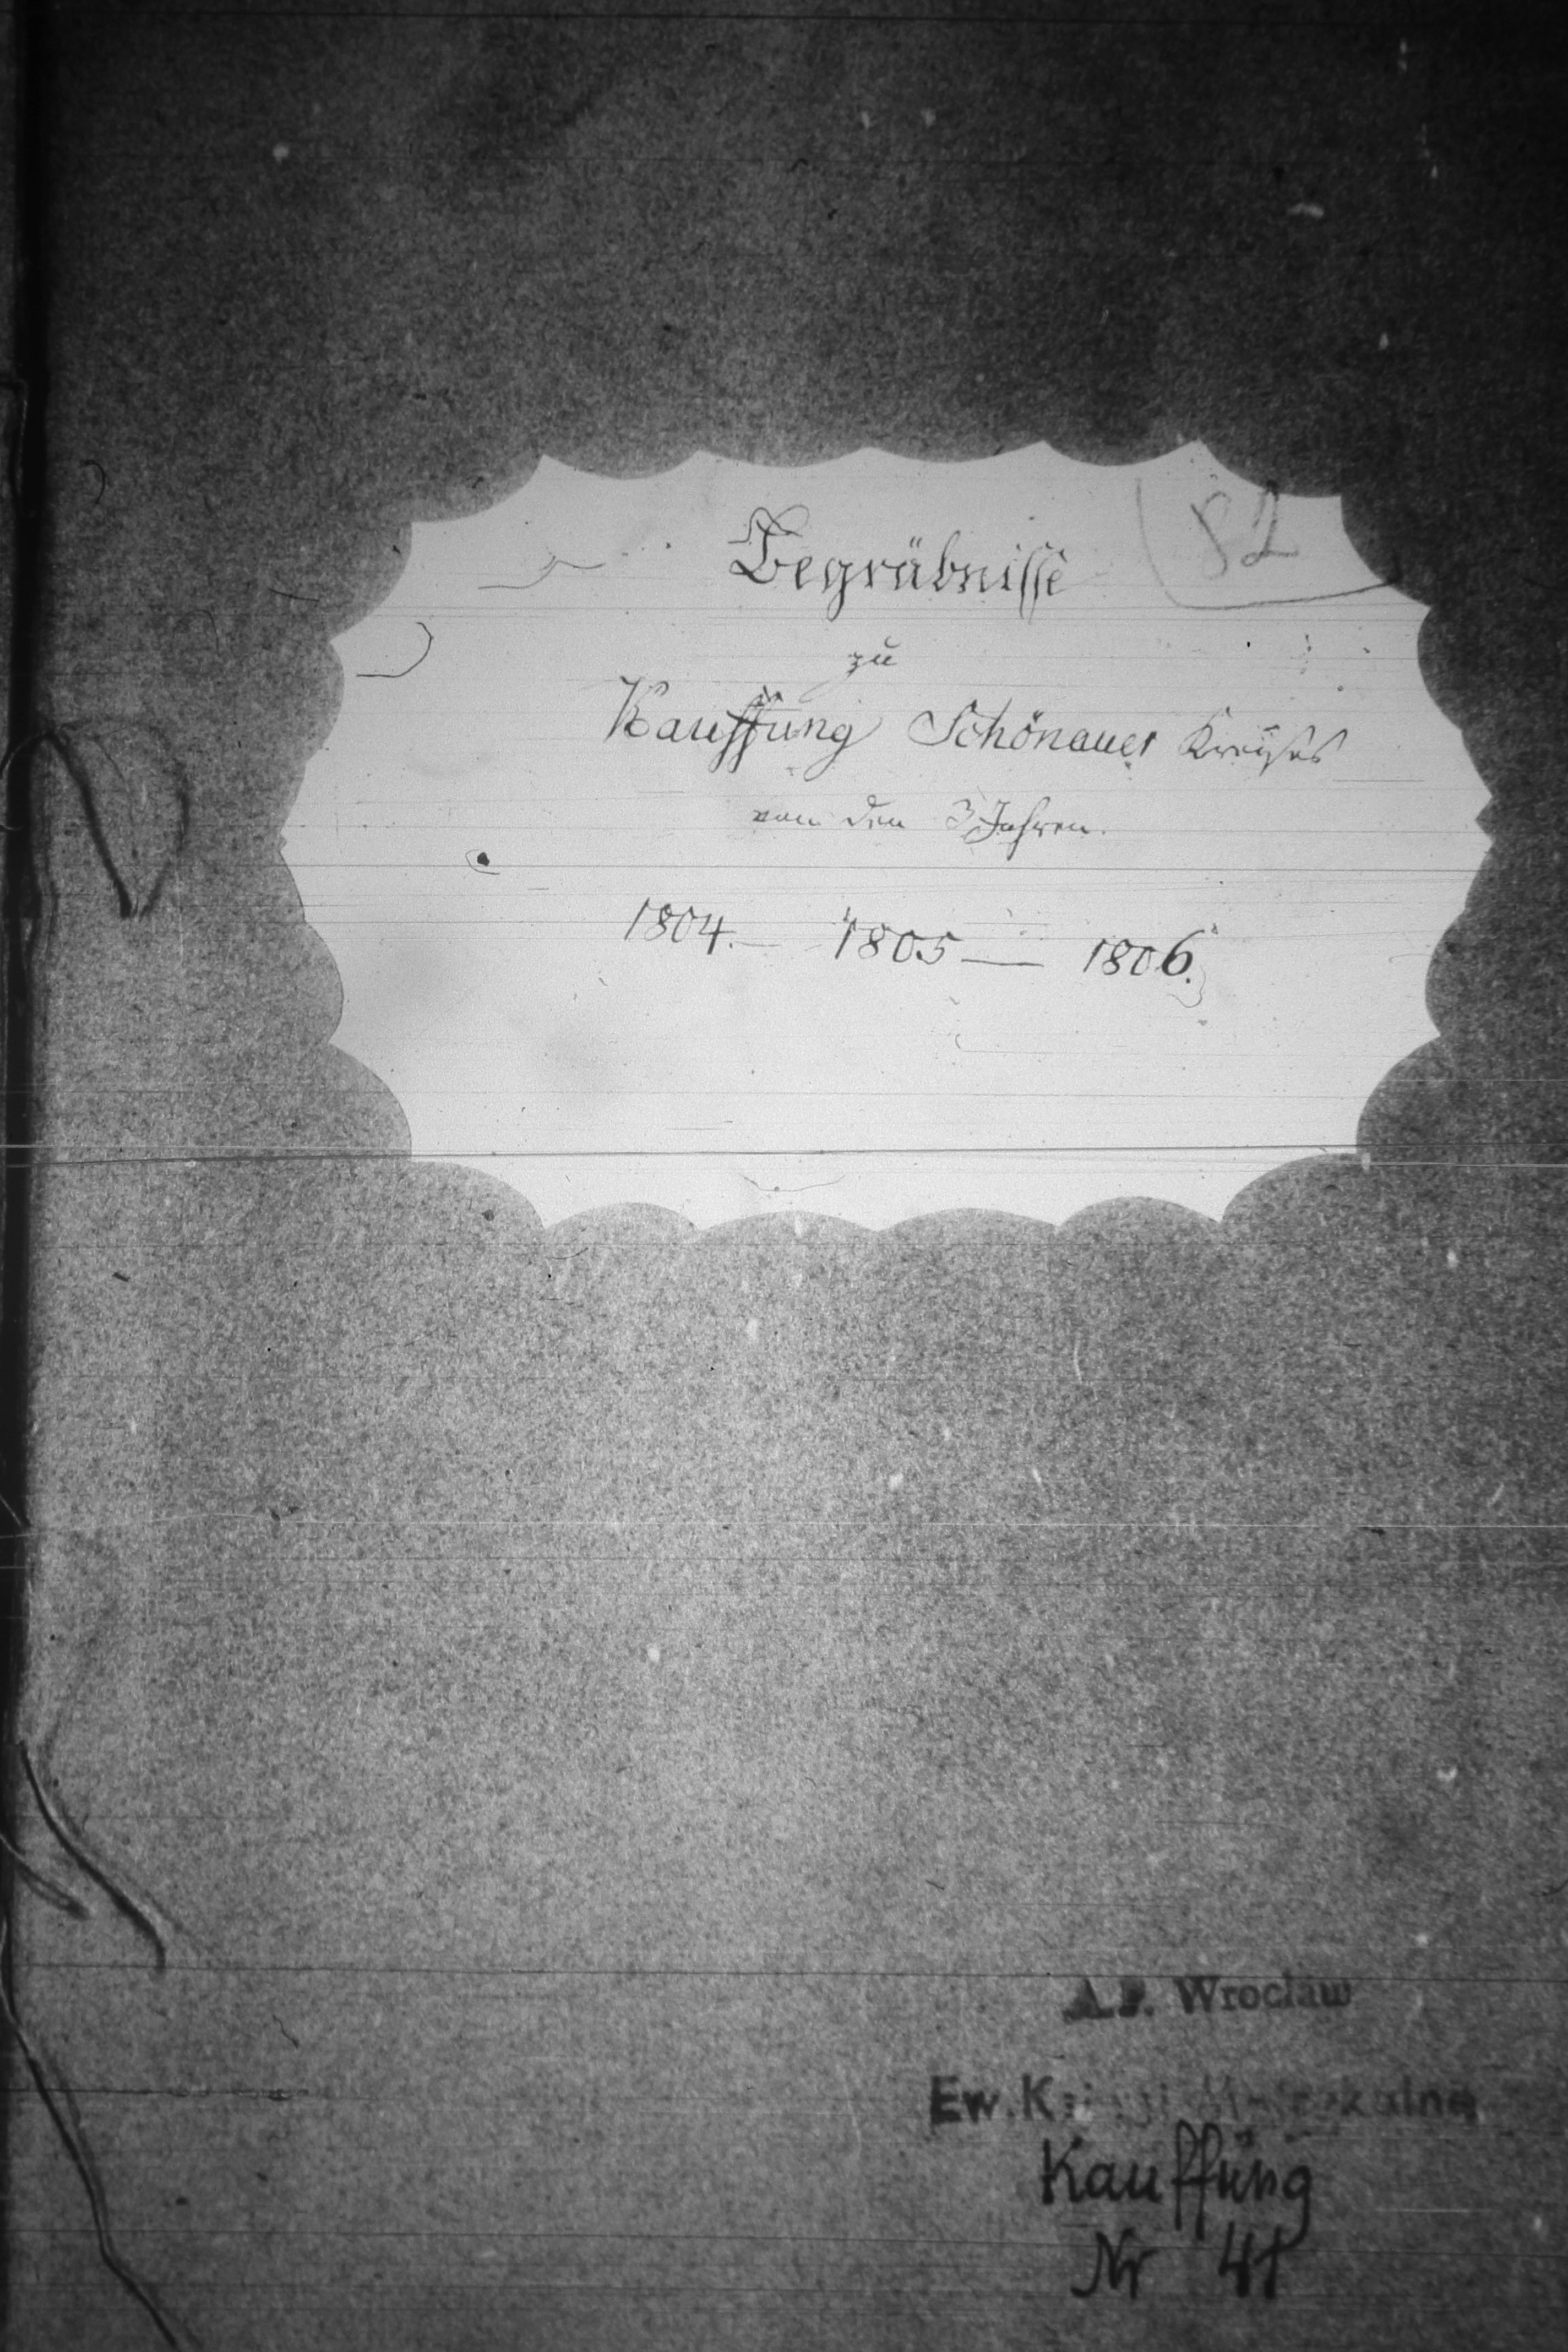 82
Begräbnisse
zu
Kauffung Schönauer Kreises
von den 3 Jahren.
1804. — 1805 — 1806.
A.P. Wrocław
Ew.
Kauffung
Nr 41